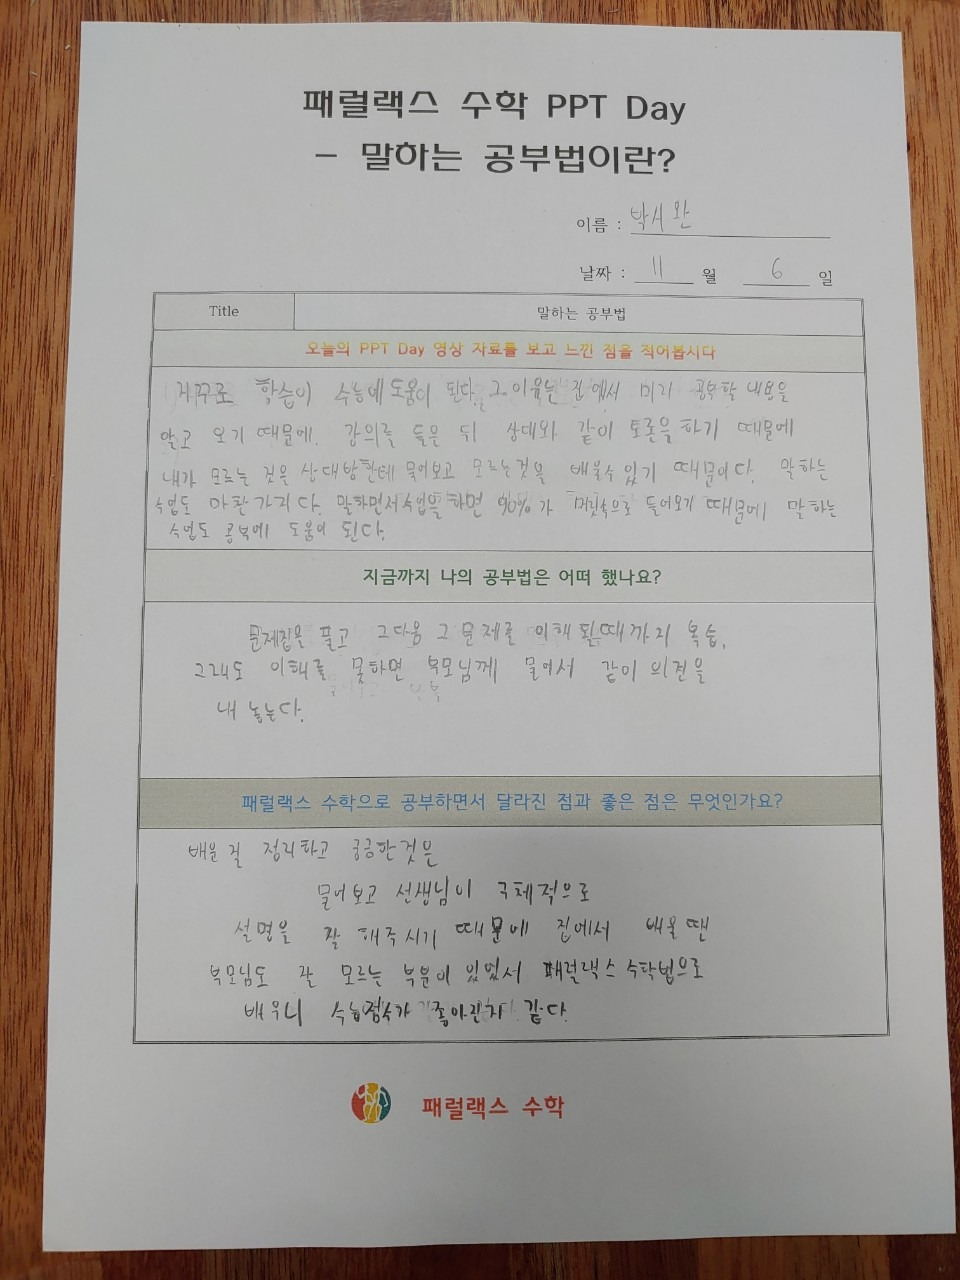 패럴랙스 수학 PPT Day
- 말하는 공부법이란?
이름 : 박시완
날짜 : 11 월 6 일
Title 말하는 공부법
오늘의 PPT Day 영상 자료를 보고 느낀 점을 적어봅시다
거꾸로 학습이 수능에 도움이 된다. 그 이유는 집에서 미리 공부할 내용을
알고 오기 때문에. 강의를 들은 뒤 상대와 같이 토론을 하기 때문에
내가 모르는 것은 상대방한테 물어보고 모르는것을 배울수 있기 때문이다. 말하는
수업도 마찬가지다. 말하면서 수업을 하면 90%가 머릿속으로 들어오기 때문에 말하는
수업도 공부에 도움이 된다.
지금까지 나의 공부법은 어떠 했나요?
문제집을 풀고 그다음 그 문제를 이해 될때까지 복습.
그래도 이해를 못하면 부모님께 물어서 같이 의견을
내 놓는다.
패럴랙스 수학으로 공부하면서 달라진 점과 좋은 점은 무엇인가요?
배운 걸 정리하고 궁금한것은
물어보고 선생님이 구체적으로
설명을 잘 해주시기 때문에 집에서 배울 땐
부모님도 잘 모르는 부분이 있었서 패럴랙스 수학법으로
배우니 수능점수가 좋아진거 같다.
패럴랙스 수학